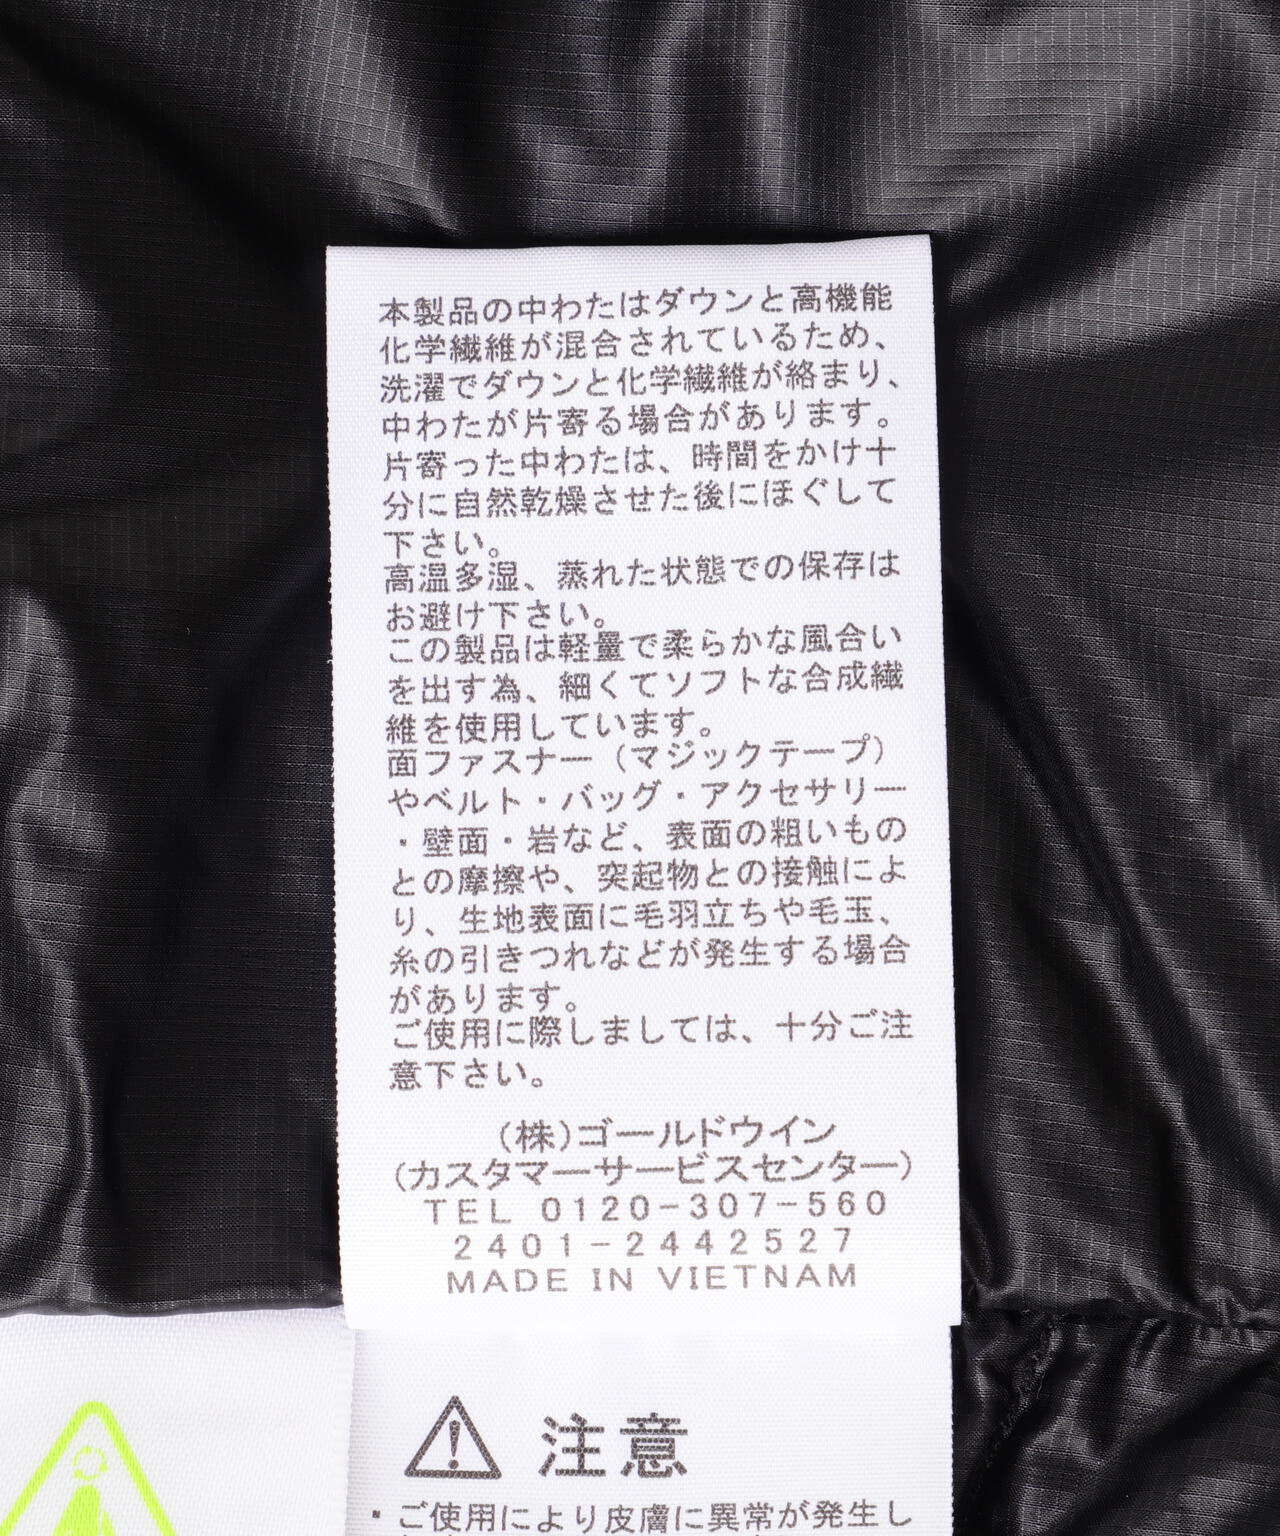 本製品の中わたはダウンと高機能
化学繊維が混合されているため、
洗濯でダウンと化学繊維が絡まり、
中わたが片寄る場合があります。
片寄った中わたは、時間をかけ十
分に自然乾燥させた後にほぐして
下さい。
高温多湿、蒸れた状態での保存は
お避け下さい。
この製品は軽量で柔らかな風合い
を出す為、細くてソフトな合成繊
維を使用しています。
面ファスナー（マジックテープ）
やベルト・バッグ・アクセサリー
・壁面・岩など、表面の粗いもの
との摩擦や、突起物との接触によ
り、生地表面に毛羽立ちや毛玉、
糸の引きつれなどが発生する場合
があります。
ご使用に際しましては、十分ご注
意下さい。
(株)ゴールドウイン
(カスタマーサービスセンター)
TEL 0120-307-560
2401-2442527
MADE IN VIETNAM
注意
・ご使用により皮膚に異常が発生し